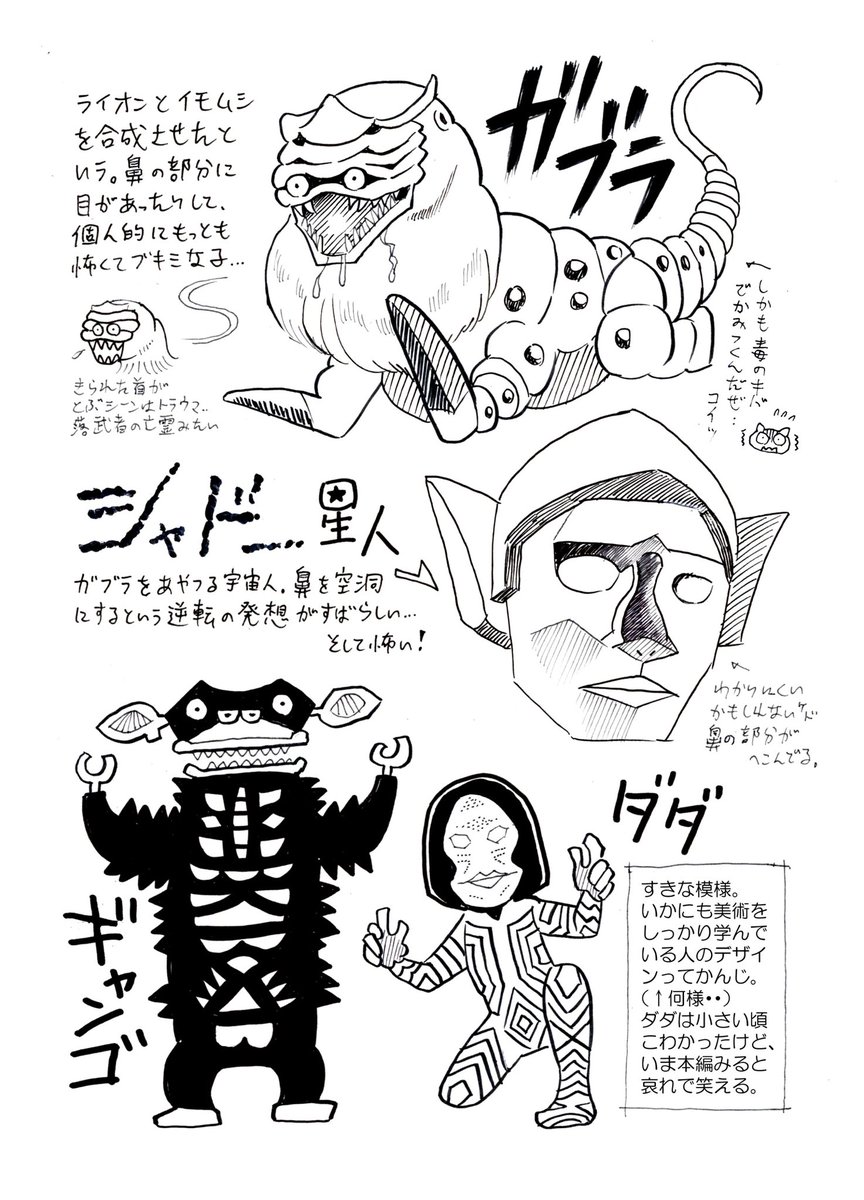 ガブラ
ライオンとイモムシ
を合成させたと
いう。鼻の部分に
目があったりして、
個人的にもっとも
怖くてブキミな子…
きられた首が
とぶシーンはトラウマ..
落武者の亡霊みたい
しかも毒のキバ
でかみつくんだぜ…
コイツ
シャドー星人
ガブラをあやつる宇宙人。鼻を空洞
にするという逆転の発想がすばらしい…
そして怖い!
わかりにくい
かもしんないケド
鼻の部分が
へこんでる。
ギャンゴ
ダダ
すきな模様。
いかにも美術を
しっかり学んで
いる人のデザイ
ンってかんじ。
(↑何様・・)
ダダは小さい頃
こわかったけど、
いま本編みると
哀れで笑える。